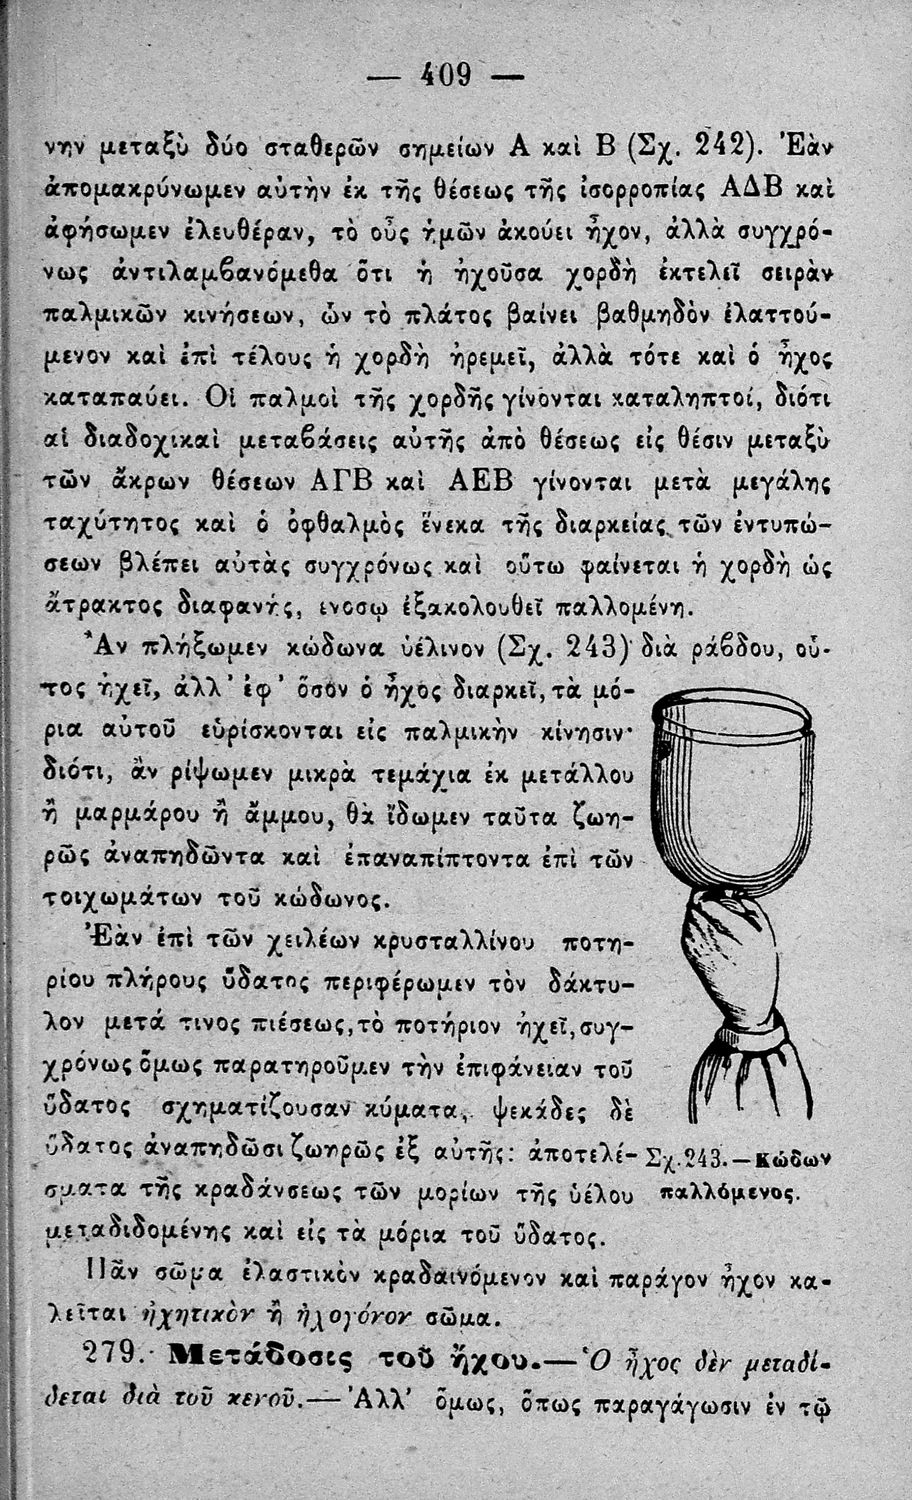 — 409 —
νην μεταξὺ δύο σταθερῶν σημείων Α καὶ Β (Σχ. 242). Ἐὰν
ἀπομακρύνωμεν αὐτὴν ἐκ τῆς θέσεως τῆς ἰσορροπίας ΑΔΒ καὶ
ἀφήσωμεν ἐλευθέραν, τὸ οὖς ἡμῶν ἀκούει ἦχον, ἀλλὰ συγχρό-
νως ἀντιλαμβανόμεθα ὅτι ἡ ἠχοῦσα χορδὴ ἐκτελεῖ σειρὰν
παλμικῶν κινήσεων, ὧν τὸ πλάτος βαίνει βαθμηδὸν ἐλαττού-
μενον καὶ ἐπὶ τέλους ἡ χορδὴ ἠρεμεῖ, ἀλλὰ τότε καὶ ὁ ἦχος
καταπαύει. Οἱ παλμοὶ τῆς χορδῆς γίνονται καταληπτοί, διότι
αἱ διαδοχικαὶ μεταβάσεις αὐτῆς ἀπὸ θέσεως εἰς θέσιν μεταξὺ
τῶν ἄκρων θέσεων ΑΓΒ καὶ ΑΕΒ γίνονται μετὰ μεγάλης
ταχύτητος καὶ ὁ ὀφθαλμὸς ἕνεκα τῆς διαρκείας τῶν ἐντυπώ-
σεων βλέπει αὐτὰς συγχρόνως καὶ οὕτω φαίνεται ἡ χορδὴ ὡς
ἄτρακτος διαφανής, ενοσῳ ἐξακολουθεῖ παλλομένη.
Ἂν πλήξωμεν κώδωνα ὑέλινον (Σχ. 243) διὰ ράβδου, οὗ-
τος ἠχεῖ, ἀλλ' ἐφ' ὅσον ὁ ἦχος διαρκεῖ, τὰ μό-
ρια αὐτοῦ εὑρίσκονται εἰς παλμικὴν κίνησιν·
διότι, ἂν ρίψωμεν μικρὰ τεμάχια ἐκ μετάλλου
ἢ μαρμάρου ἢ ἄμμου, θὰ ἴδωμεν ταῦτα ζωη-
ρῶς ἀναπηδῶντα καὶ ἐπαναπίπτοντα ἐπὶ τῶν
τοιχωμάτων τοῦ κώδωνος.
Ἐὰν ἐπὶ τῶν χειλέων κρυσταλλίνου ποτη-
ρίου πλήρους ὕδατος περιφέρωμεν τὸν δάκτυ-
λον μετά τινος πιέσεως, τὸ ποτήριον ἠχεῖ, συγ-
χρόνως ὅμως παρατηροῦμεν τὴν ἐπιφάνειαν τοῦ
ὕδατος σχηματίζουσαν κύματα, ψεκάδες δὲ
ὕδατος ἀναπηδῶσι ζωηρῶς ἐξ αὐτῆς: ἀποτελέ-
σματα τῆς κραδάνσεως τῶν μορίων τῆς ὑέλου
μεταδιδομένης καὶ εἰς τὰ μόρια τοῦ ὕδατος.
Σχ. 243.—Κώδων
παλλόμενος.
Πᾶν σῶμα ἐλαστικὸν κραδαινόμενον καὶ παράγον ἦχον κα-
λεῖται ἠχητικὸν ἢ ἠχογόνον σῶμα.
279. Μετάδοσις τοῦ ἤχου.—Ὁ ἦχος δὲν μεταδί-
δεται διὰ τοῦ κενοῦ.— Ἀλλ' ὅμως, ὅπως παραγάγωσιν ἐν τῷ